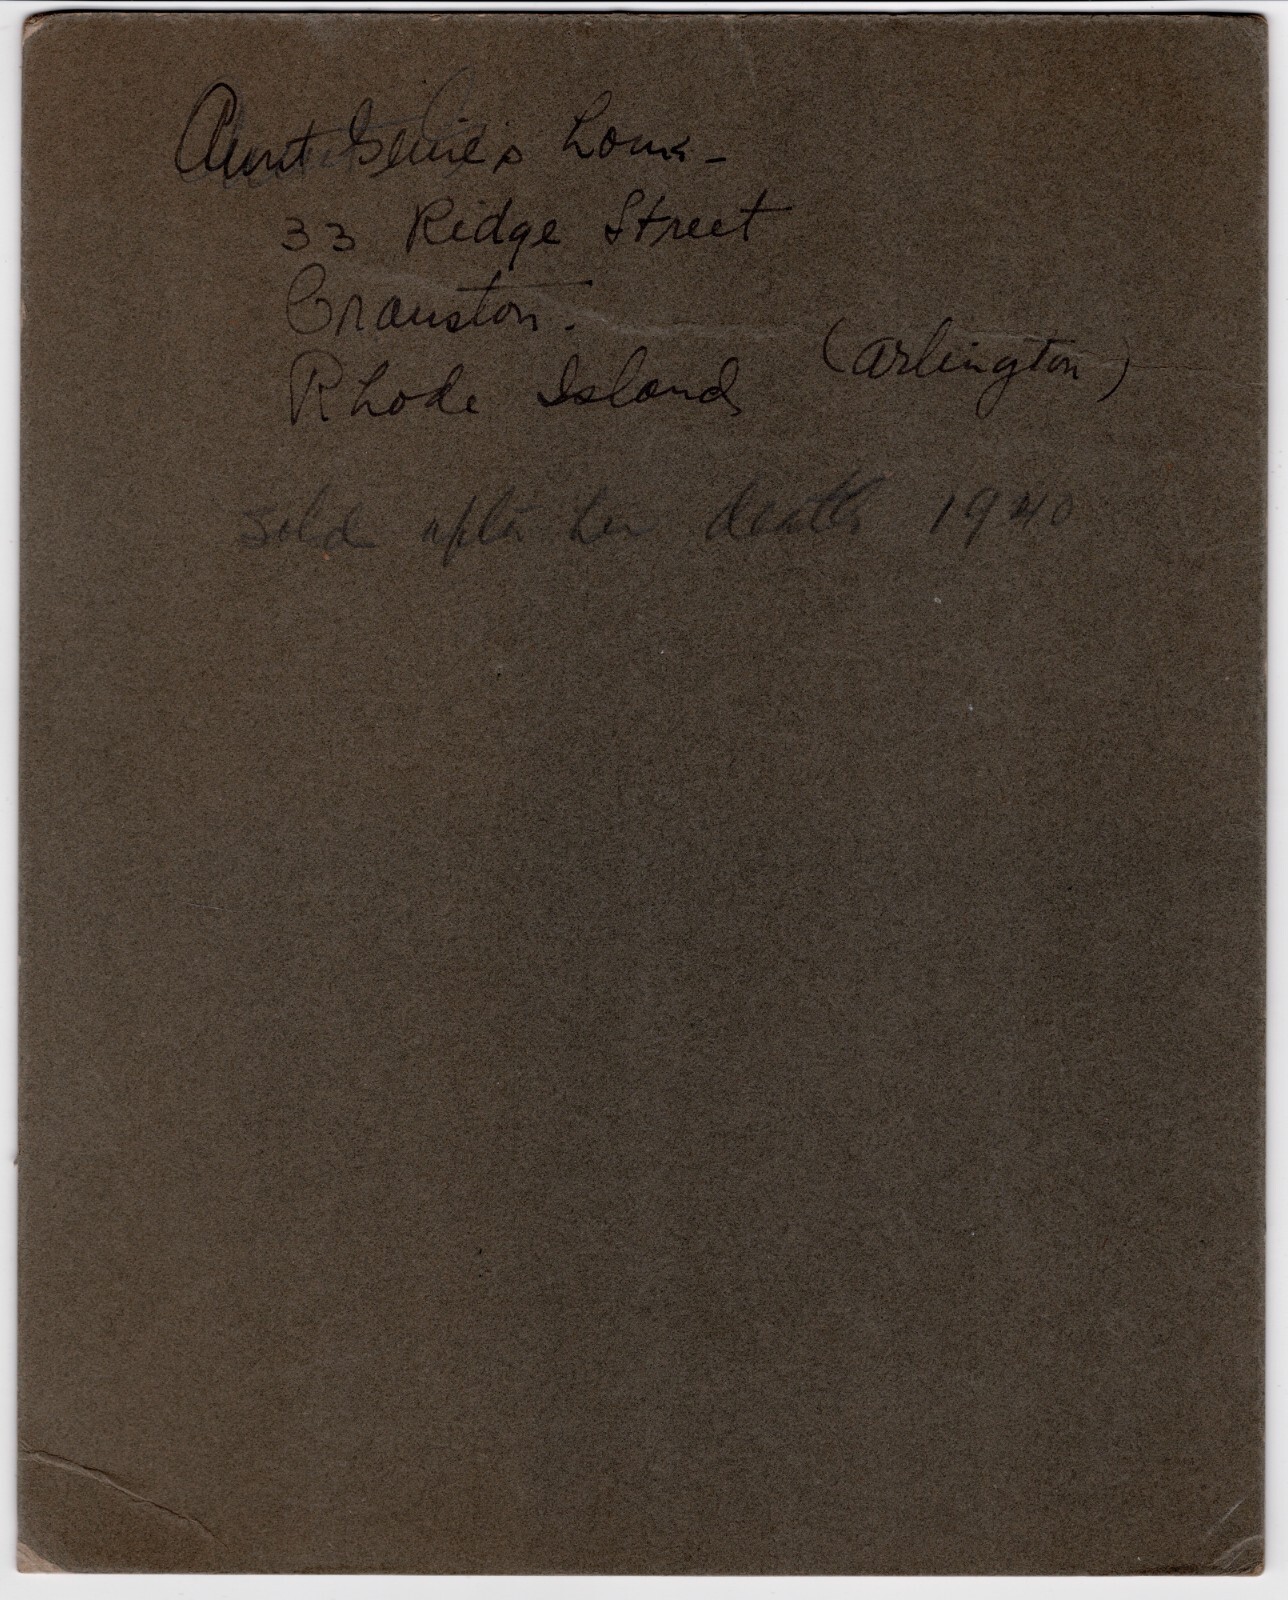 Aunt Genie's home -
33 Ridge Street
Cranston.
Rhode Island (Arlington)
sold after her death 1940